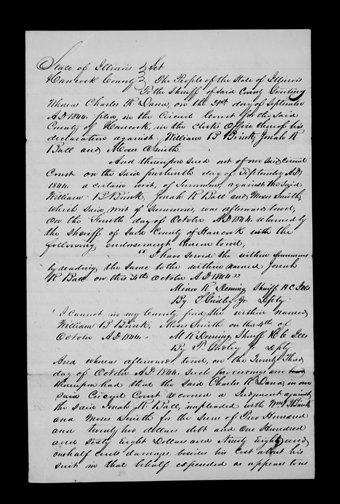 State of Illinois } Sct
Hancock County } The People of the State of Illinois
To the Sheriff of said County Greeting
Whereas Charles R Dana, on the 21st day of September
AD 1844 filed in the Circuit Court for the said
County of Hancock, in the clerks Office thereof his
declaration against William B Brink, Josiah R
Ball and Moses Smith
And thereupon sued out of our said Circuit
Court on the said day of September AD
1844. a certain writ, of Summons, against the said
William B Brink, Josiah R Ball and Moses Smith,
which said writ of Summons, was afterwards
On the day of October AD 1844 returned by
the Sheriff of said County of Hancock with the
following endorsement thereon
"I have served the within summons
by reading the same to the within named Josiah
R Ball on this 4th October AD 1844"
Minor R Deming Sheriff H C Ills
By Depty
"I cannot in my County find the within named
William B Brink, Moses Smith on the 4th of
October AD 1844.- M R Deming Sheriff H C Ills
By Depty
And whereas afterwards towit, on the
day of October AD 1844. Such proceedings were
thereupon had that the said Charles R Dana, in our
said Circuit Court recovered a Judgment against
the said Josiah R Ball, impleaded with Wm B Brink
and Moses Smith for the Sum of One Hundred
and ninety two dollars debt and One Hundred
and Sixty Eight Dollars and Ninety Eight and
onehalf cents damages besides his cost about his
suit in that behalf expended as appears to us